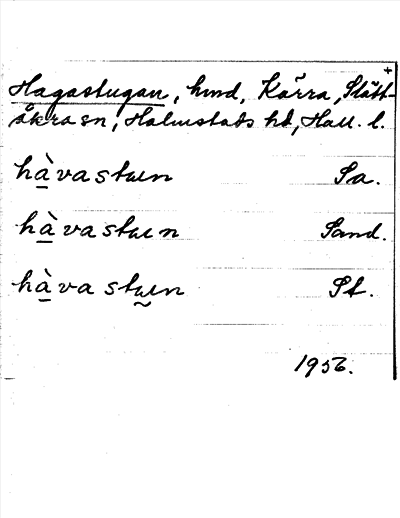 +
Hagastugan, hmd, Kärra, Slätt-
åkra sn, Halmstads hd, Hall. l.
hàvastuen Sa.
hàvastuen Sand.
hàvastuen St.
1956.